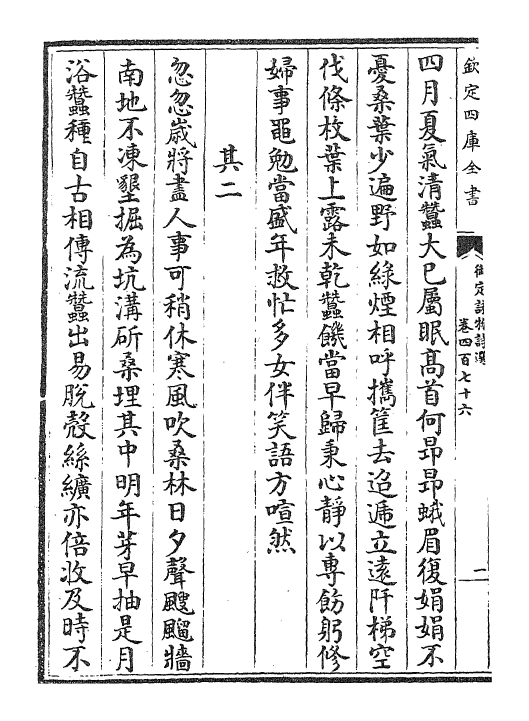 欽定四庫全書
御定詠物詩選
卷四百七十六
二
四月夏氣清蠶大已屬眠高首何昻昻蛾眉復娟娟不
憂桑葉少遍野如綠煙相呼攜筐去迢遞立遠阡梯空
伐條枚葉上露未乾蠶饑當早歸秉心靜以專飭躬修
婦事黽勉當盛年救忙多女伴笑語方喧然
其二
忽忽嵗將盡人事可稍休寒風吹桑林日夕聲颼飀牆
南地不凍墾掘為坑溝斫桑埋其中明年芽早抽是月
浴蠶種自古相傳流蠶出易脫殻絲纊亦倍收及時不